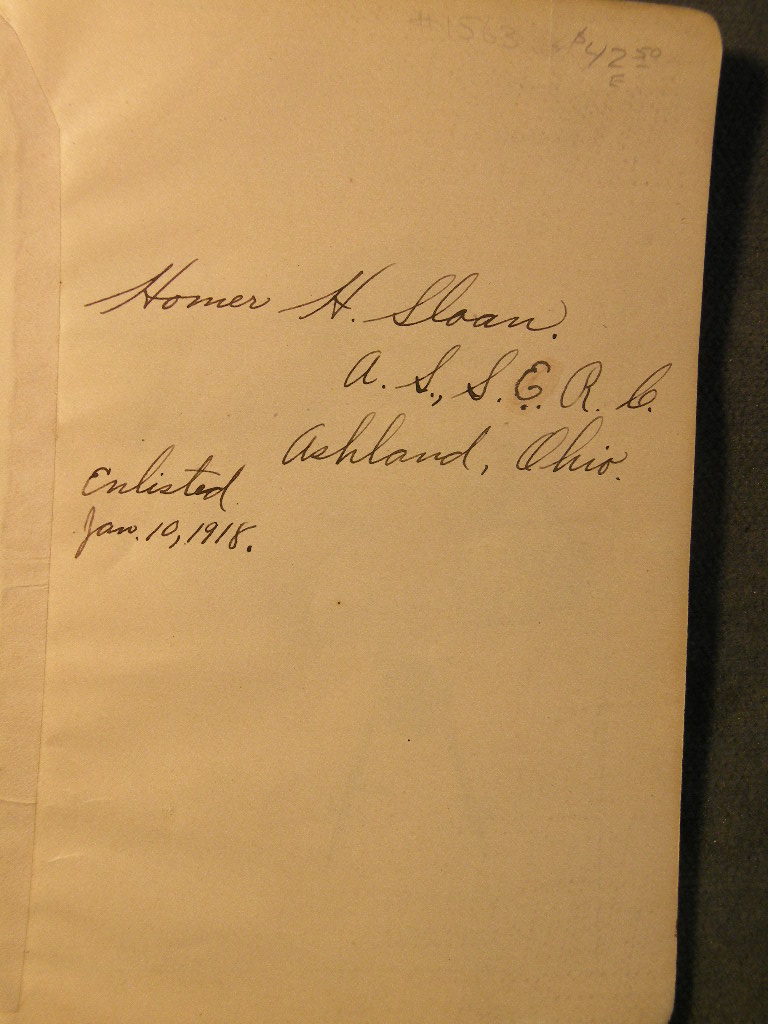 #1563 $42.50
E
Homer H. Sloan.
A. S., S. E. R. C.
Ashland, Ohio.
Enlisted
Jan. 10, 1918.